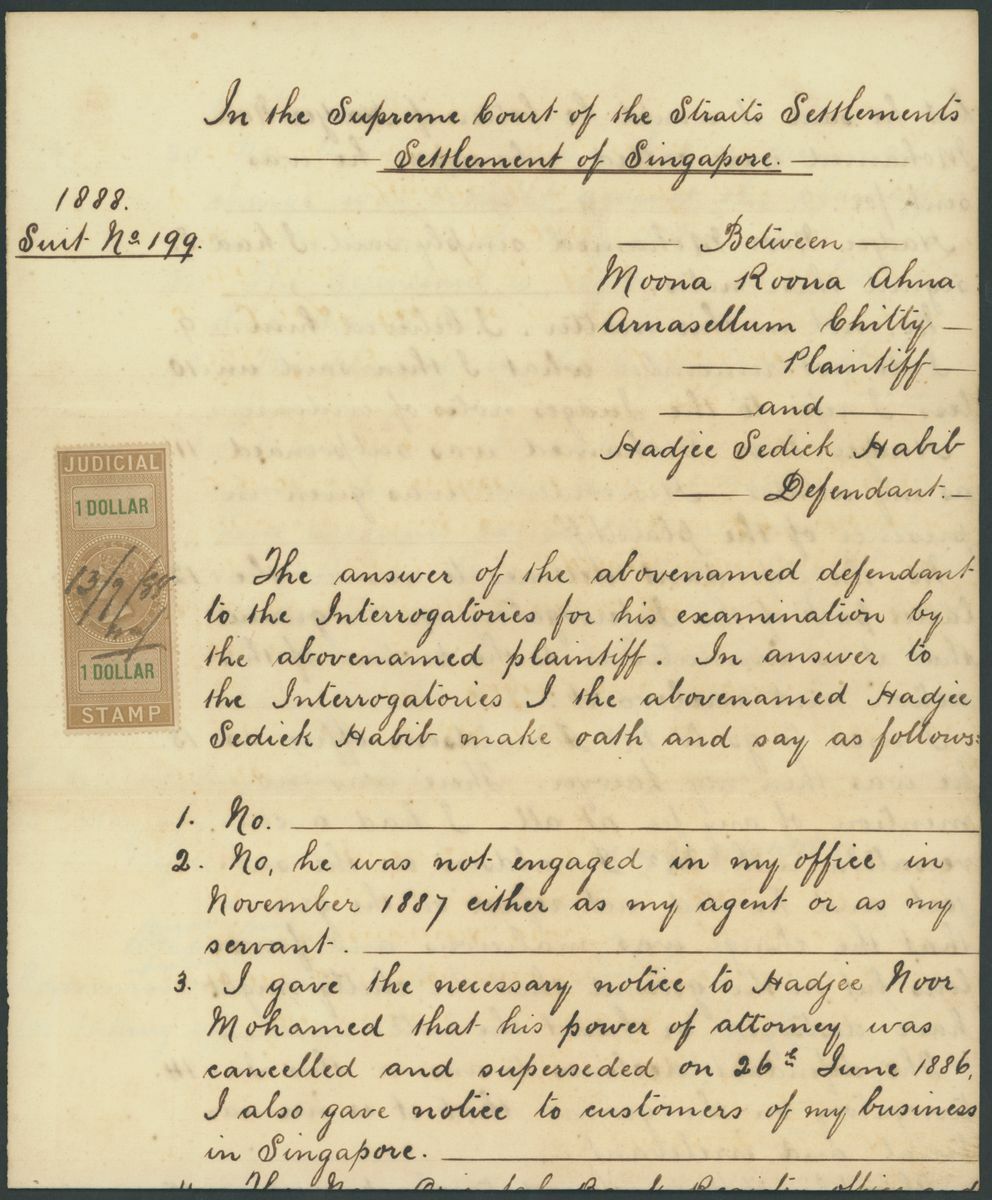 In the Supreme Court of the Straits Settlements
Settlement of Singapore.
1888.
Suit No 199.
Between
Moona Roona Ahna
Arnasellum Chitty
Plaintiff
and
Hadjee Sedick Habib
Defendant.
JUDICIAL
1 DOLLAR
13/9/88
1 DOLLAR
STAMP
The answer of the abovenamed defendant
to the Interrogatories for his examination by
the abovenamed plaintiff. In answer to
the Interrogatories I the abovenamed Hadjee
Sedick Habib make oath and say as follows:
1. No.
2. No, he was not engaged in my office in
November 1887 either as my agent or as my
servant.
3. I gave the necessary notice to Hadjee Noor
Mohamed that his power of attorney was
cancelled and superseded on 26th June 1886,
I also gave notice to customers of my business
in Singapore.